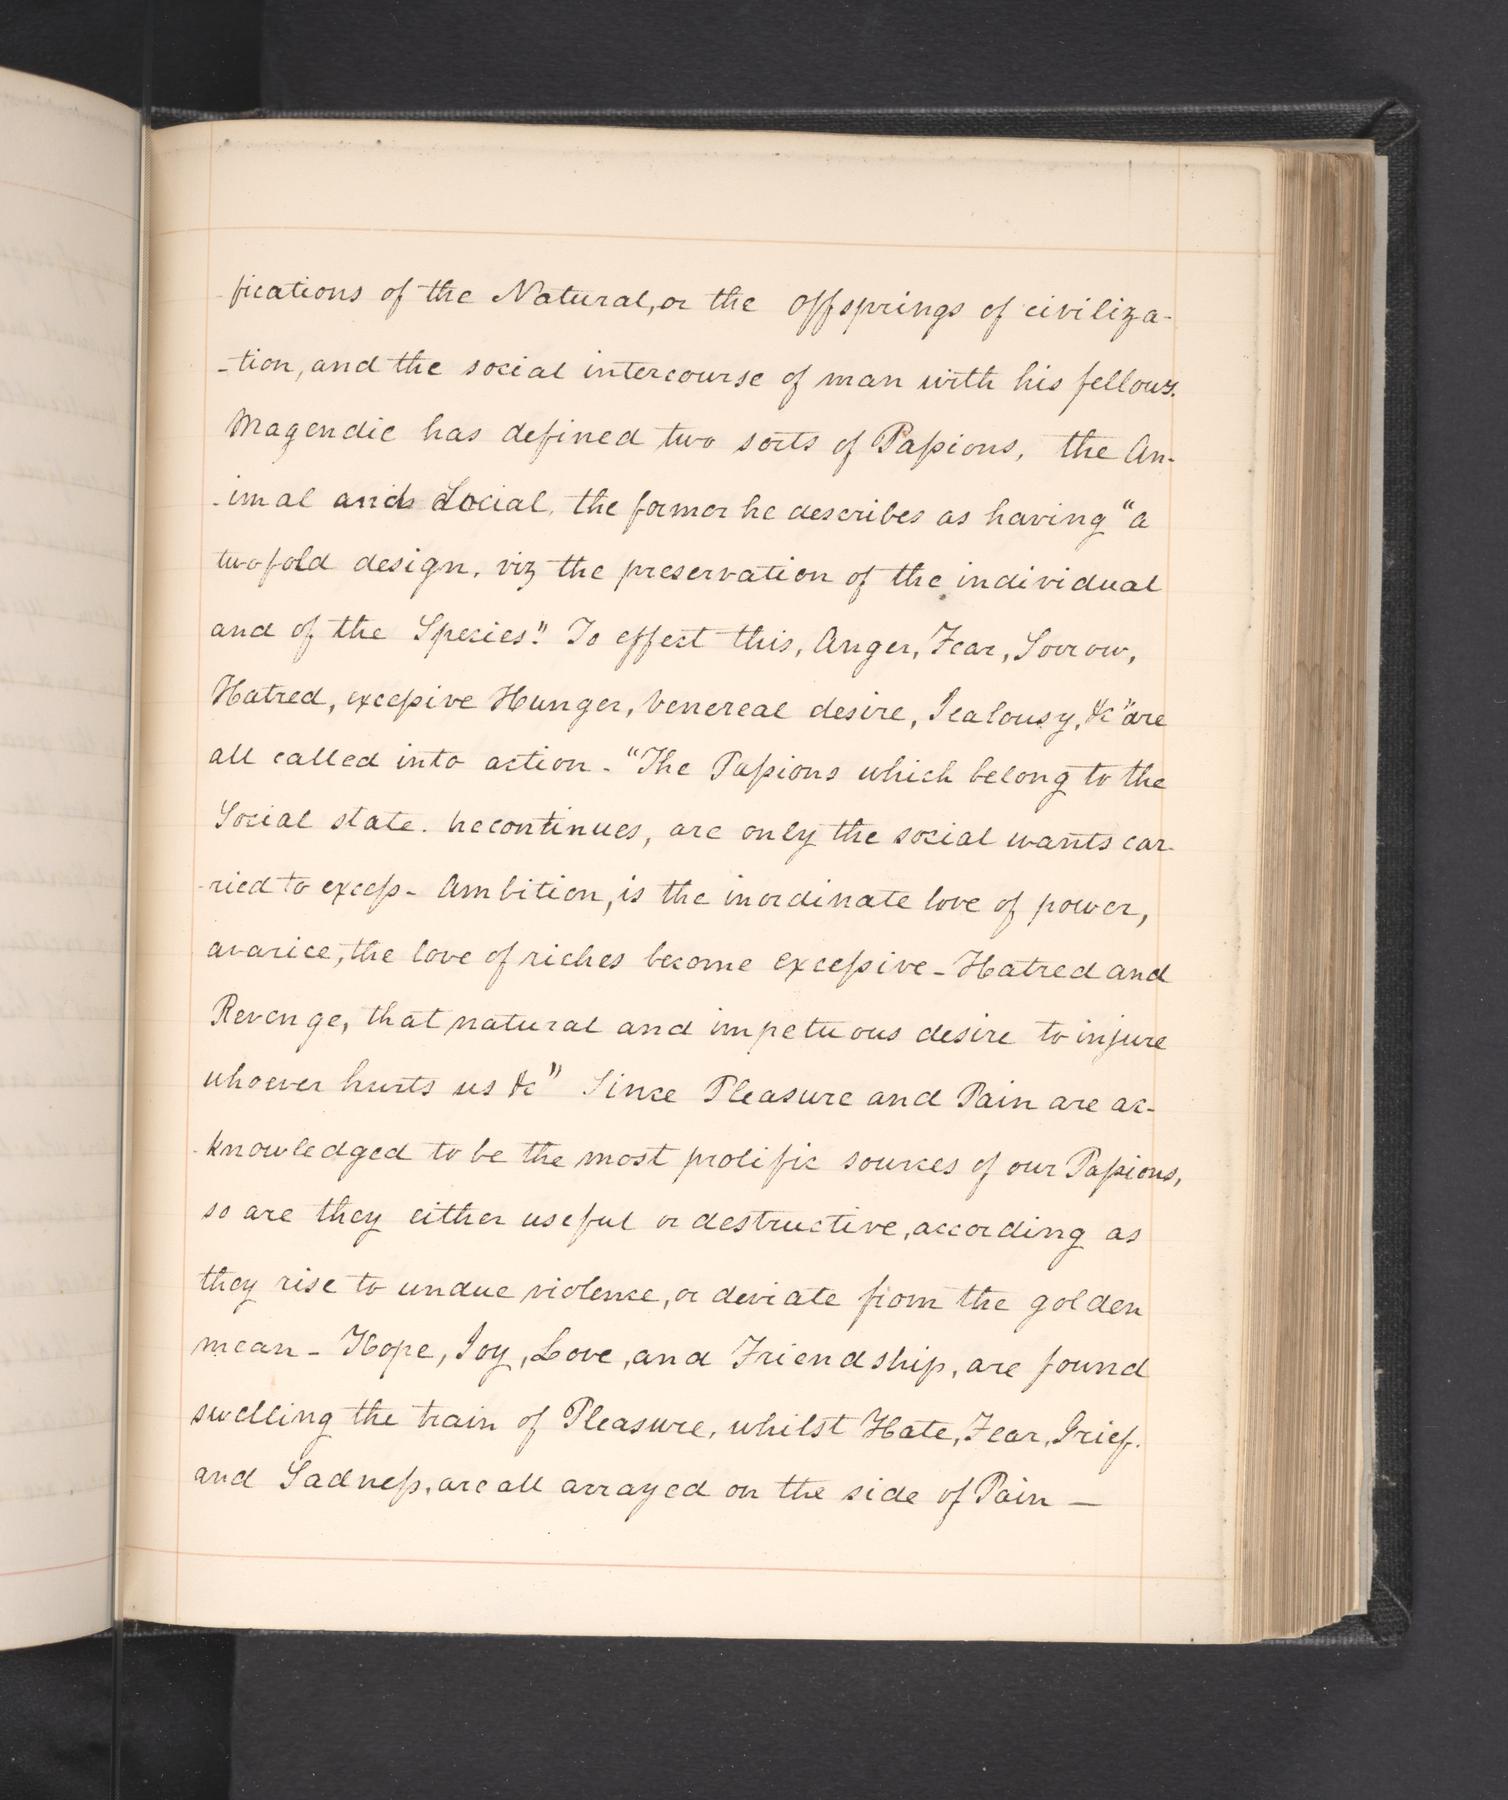 -fications of the Natural, or the offsprings of civiliza-
-tion, and the social intercourse of man with his fellows.
Magendie has defined two sorts of Passions, the An-
-imal and Social, the former he describes as having "a
twofold design, viz the preservation of the individual
and of the Species." To effect this, Anger, Fear, Sorrow,
Hatred, excessive Hunger, Venereal desire, Jealousy, &c "are
all called into action - "The Passions which belong to the
Social state. he continues, are only the social wants car-
-ried to excess - Ambition, is the inordinate love of power,
avarice, the love of riches become excessive - Hatred and
Revenge, that natural and impetuous desire to injure
whoever hurts us &c" Since Pleasure and Pain are ac-
-knowledged to be the most prolific sources of our Passions,
so are they either useful or destructive, according as
they rise to undue violence, or deviate from the golden
mean - Hope, Joy, Love, and Friendship, are found
swelling the train of Pleasure, whilst Hate, Fear, Grief.
and Sadness, are all arrayed on the side of Pain —